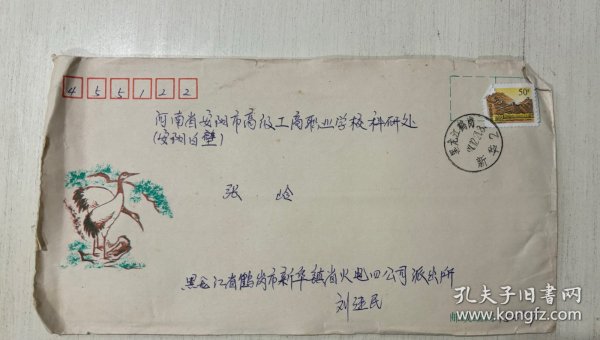 4 5 5 1 2 2
河南省安阳市高级工商职业学校科研处
(安阳白壁)
50分
黑龙江鹤岗
张 岭
黑龙江省鹤岗市新华镇省火电四公司派出所
刘延民
孔夫子旧书网
www.kongfz.com